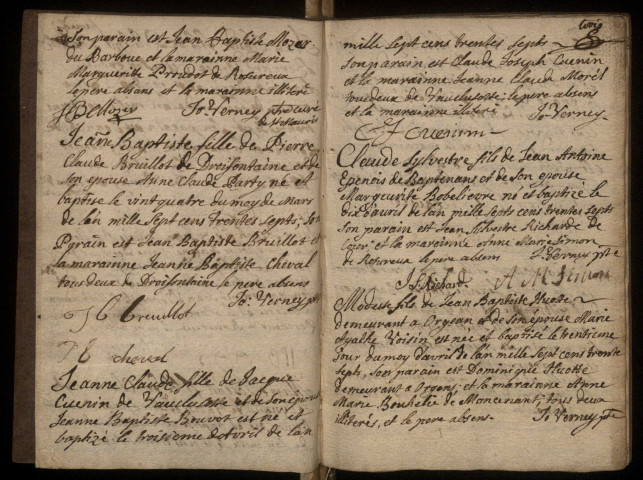 Son parain est Jean Baptiste Mozer
du Barboux et la marainne Marie
Margueritte Prrudot de Rosereux
le pere absens et la marainne illiteré
JB Mozer Jo: Verney ptre curé
Jeanne Baptiste fille de Pierre
Claude Bruillot de Droisfontaine et de
son epouse Anne Claude Party né et
baptise le vint quatre du moy de Mars
de l'an mille Sept cens trentes Septs, son
Parain est Jean Baptiste Bruillot et
la marainne Jeanne Baptiste Cheval
tous deux de Droisfontaine le pere absens
Jo: Verney ptre
JB breuillot
cheval
Jeanne Claude fille de Jacque
Cuenin de Vauclusotte et de son épouse
Jeanne Baptiste Bruvot est né et
baptizé le troisieme d'Avril de l'an
mille Sept cens trentes Septs
Son parain est Claude Joseph Cuenin
et la marainne Jeanne Claude Morél
tous deux de Vauclusotte le pere absens
et la marainne illiteré Jo: Verney
Cuenin
Claude Sylvestre fils de Jean Antoine
Epenois de Baptenans et de son epouse
Marguerite Bobelievre né et baptizé le
dix d'avril de l'an mille Septs cens trentes Septs
Son parain est Jean Silvestre Richarde de
et la mareinne Anne Marie Simon
de Rosereux le pere absens J: Verney ptre
JS Richard A M Simon
Modeste fils de Jean Baptiste Huote
demeurant a Orgean et de son épouse Marie
Voisin est née et baptisé le trentieme
jour du moy d'avril de l'an mille Sept cens trente
Septs, son parain est Dominique Huotte
demeurant a Orgens, et la marainne Anne
Marie Bouhelié de Mancenant, tous deux
illiterés, et le pere absens. Jo Verney ptre